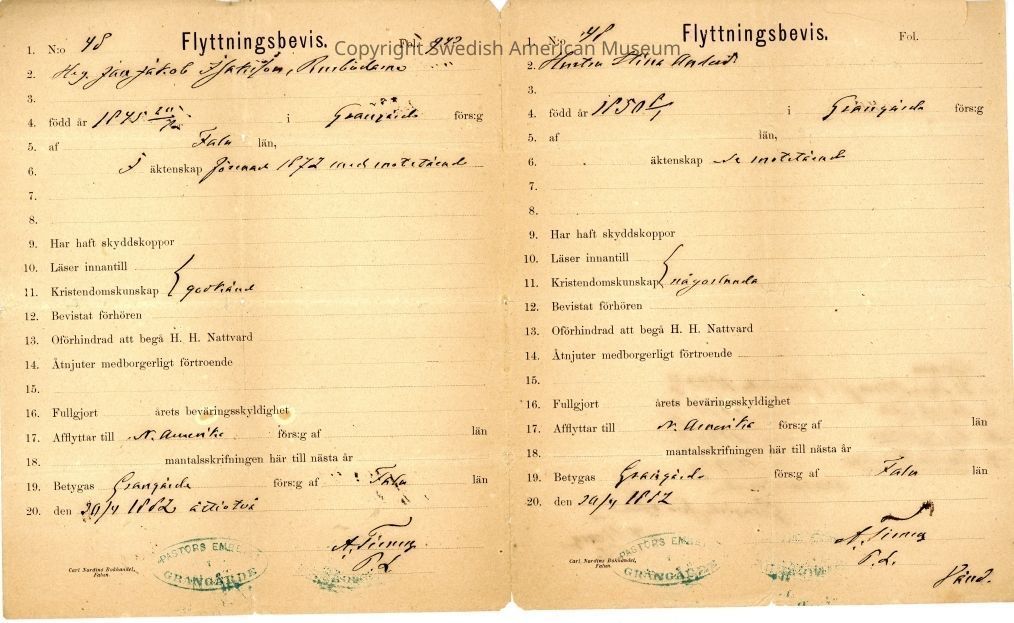 Copyright Swedish American Museum
1. N:o 48 Flyttningsbevis. Fol.
2. Jan Jakob
3.
4. född år 1845 i Grangärde förs:g
5. af Falu län,
6. I äktenskap 1872 med motstående
7.
8.
9. Har haft skyddskoppor
10. Läser innantill
11. Kristendomskunskap godkänd
12. Bevistat förhören
13. Oförhindrad att begå H. H. Nattvard
14. Åtnjuter medborgerligt förtroende
15.
16. Fullgjort årets beväringsskyldighet
17. Afflyttar till N. Amerika förs:g af län
18. mantalsskrifningen här till nästa år
19. Betygas Grangärde förs:g af Falu län
20. den 20/4 1882 åttiotvå
P. L.
PASTORS EMBETE
I
GRANGÄRDE
Carl Nordins Bokhandel,
Falun.
1. N:o 48 Flyttningsbevis. Fol.
2. Hustru Stina
3.
4. född år 1850 i Grangärde förs:g
5. af län,
6. äktenskap se motstående
7.
8.
9. Har haft skyddskoppor
10. Läser innantill
11. Kristendomskunskap någorlunda
12. Bevistat förhören
13. Oförhindrad att begå H. H. Nattvard
14. Åtnjuter medborgerligt förtroende
15.
16. Fullgjort årets beväringsskyldighet
17. Afflyttar till N. Amerika förs:g af län
18. mantalsskrifningen här till nästa år
19. Betygas Grangärde förs:g af Falu län
20. den 20/4 1882
P. L.
Vänd.
PASTORS EMBETE
I
GRANGÄRDE
Carl Nordins Bokhandel,
Falun.